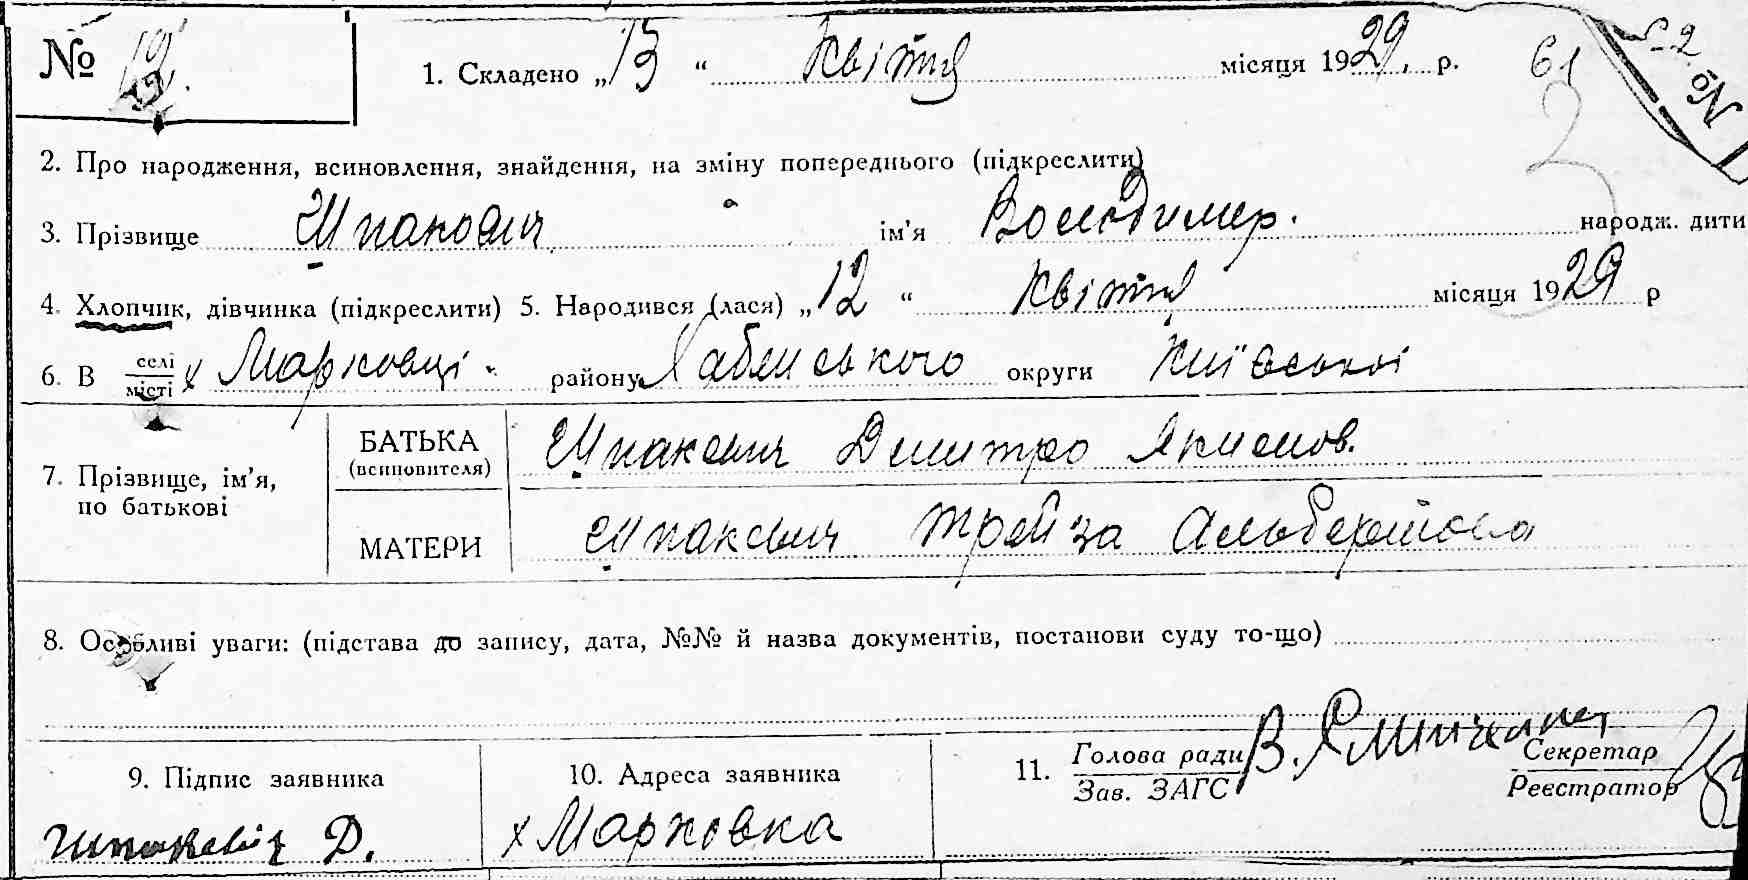 № 19
1. Складено „13“ Квітня місяця 1929. р. 61
№ 2
2
2. Про народження, всиновлення, знайдення, на зміну попереднього (підкреслити)
3. Прізвище Шпакович ім’я Володимер. народж. дити
4. Хлопчик, дівчинка (підкреслити) 5. Народився (лася) „12“ Квітня місяця 1929 р
6. В селі/місті х Марковці району округи Київської
7. Прізвище, ім’я, по батькові
БАТЬКА (всиновителя) Шпакевич Дмитро Якимов.
МАТЕРИ Шпакевич Альбертовна
8. Особливі уваги: (підстава до запису, дата, №№ й назва документів, постанови суду то-що)
9. Підпис заявника
Шпакевич Д.
10. Адреса заявника
х Марковка
11. Голова ради/Зав. ЗАГС В. Секретар/Реєстратор